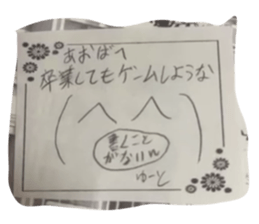 あおばへ
卒業してもゲームしような
書くこと
がないw
ゆーと